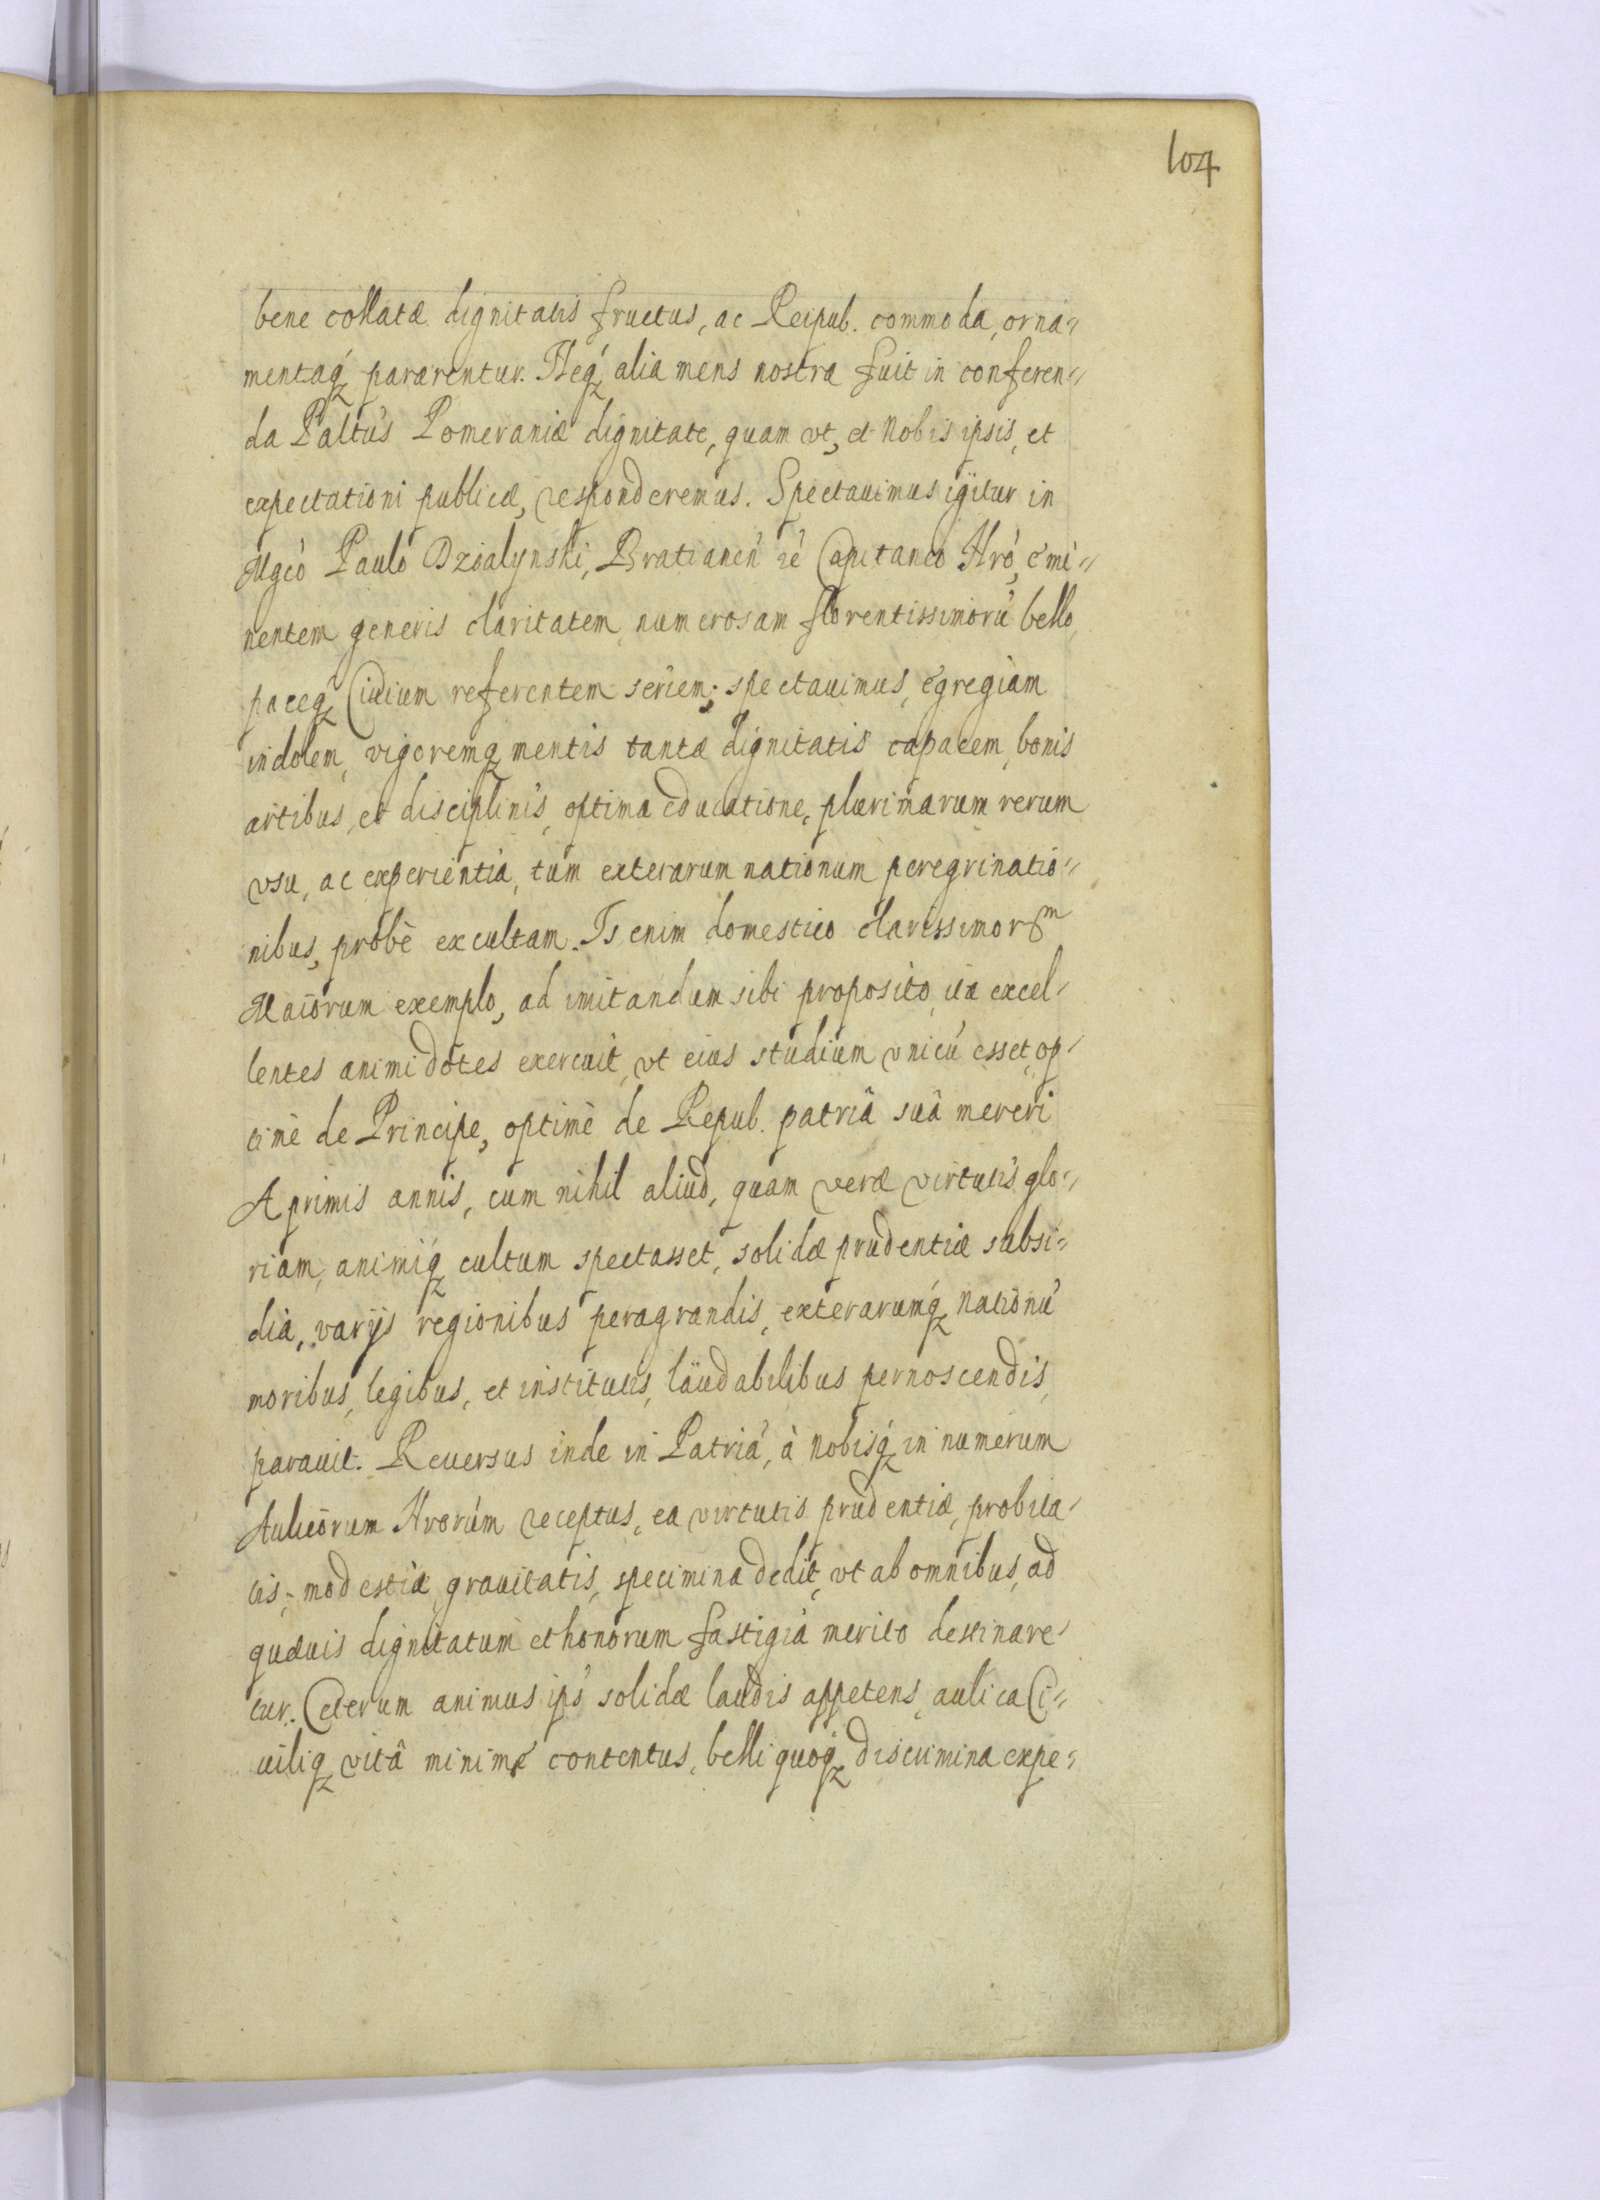 104
bene collatæ dignitatis fructus, ac Reipub. commoda, orna⸗
mentaq́ʒ pararentur. Neq́ʒ alia mens nostra fuit in conferen⸗
da Paltus Pomeraniæ dignitate, quam vt, et Nobis ipsis, et
expectationi publicæ, responderemus. Spectauimus igitur in
Mgcó Paulo Dzialynski, Bratianeń rē Capitaneo Nró, emi⸗
nentem generis claritatem, numerosam florentissimorú bello,
paceqʒ Ciuium referentem seriem; spectauimus, egregiam
indolem, vigoremqʒ mentis tantæ dignitatis capacem, bonis
artibus, et disciplinis, optima educatione, plurimarum rerum
vsu, ac experientia, tum exterarum nationum peregrinatio⸗
nibus, probè excultam. Is enim domestico clarissimorᵐ
Maiorum exemplo, ad imitandum sibi proposito, ita excel⸗
lentes animi dotes exercuit, vt eius studium vnicú esset, op⸗
timè de Principe, optimè de Repub. patriâ suâ mereri
A primis annis, cum nihil aliud, quam veræ virtutis glo⸗
riam, animiq́ʒ cultum spectasset, solidæ prudentiæ subsi⸗
dia, varijs regionibus peragrandis, exterarumq́ʒ Nationú
moribus, legibus, et institutis, laudabilibus pernoscendis,
parauit. Reuersus inde in Patriá, à Nobisq́ʒ in numerum
Aulicorum Nrorúm receptus, ea virtutis prudentiæ, probita⸗
tis, modestiæ, grauitatis, specimina dedit, vt ab omnibus, ad
quæuis dignitatum et honorum fastigia merito destinare⸗
tur. Ceterum animus ips solidæ laudis appetens, aulica Ci⸗
uiliqʒ vitâ minime contentus, belli quoq́ʒ discrimina expe⸗